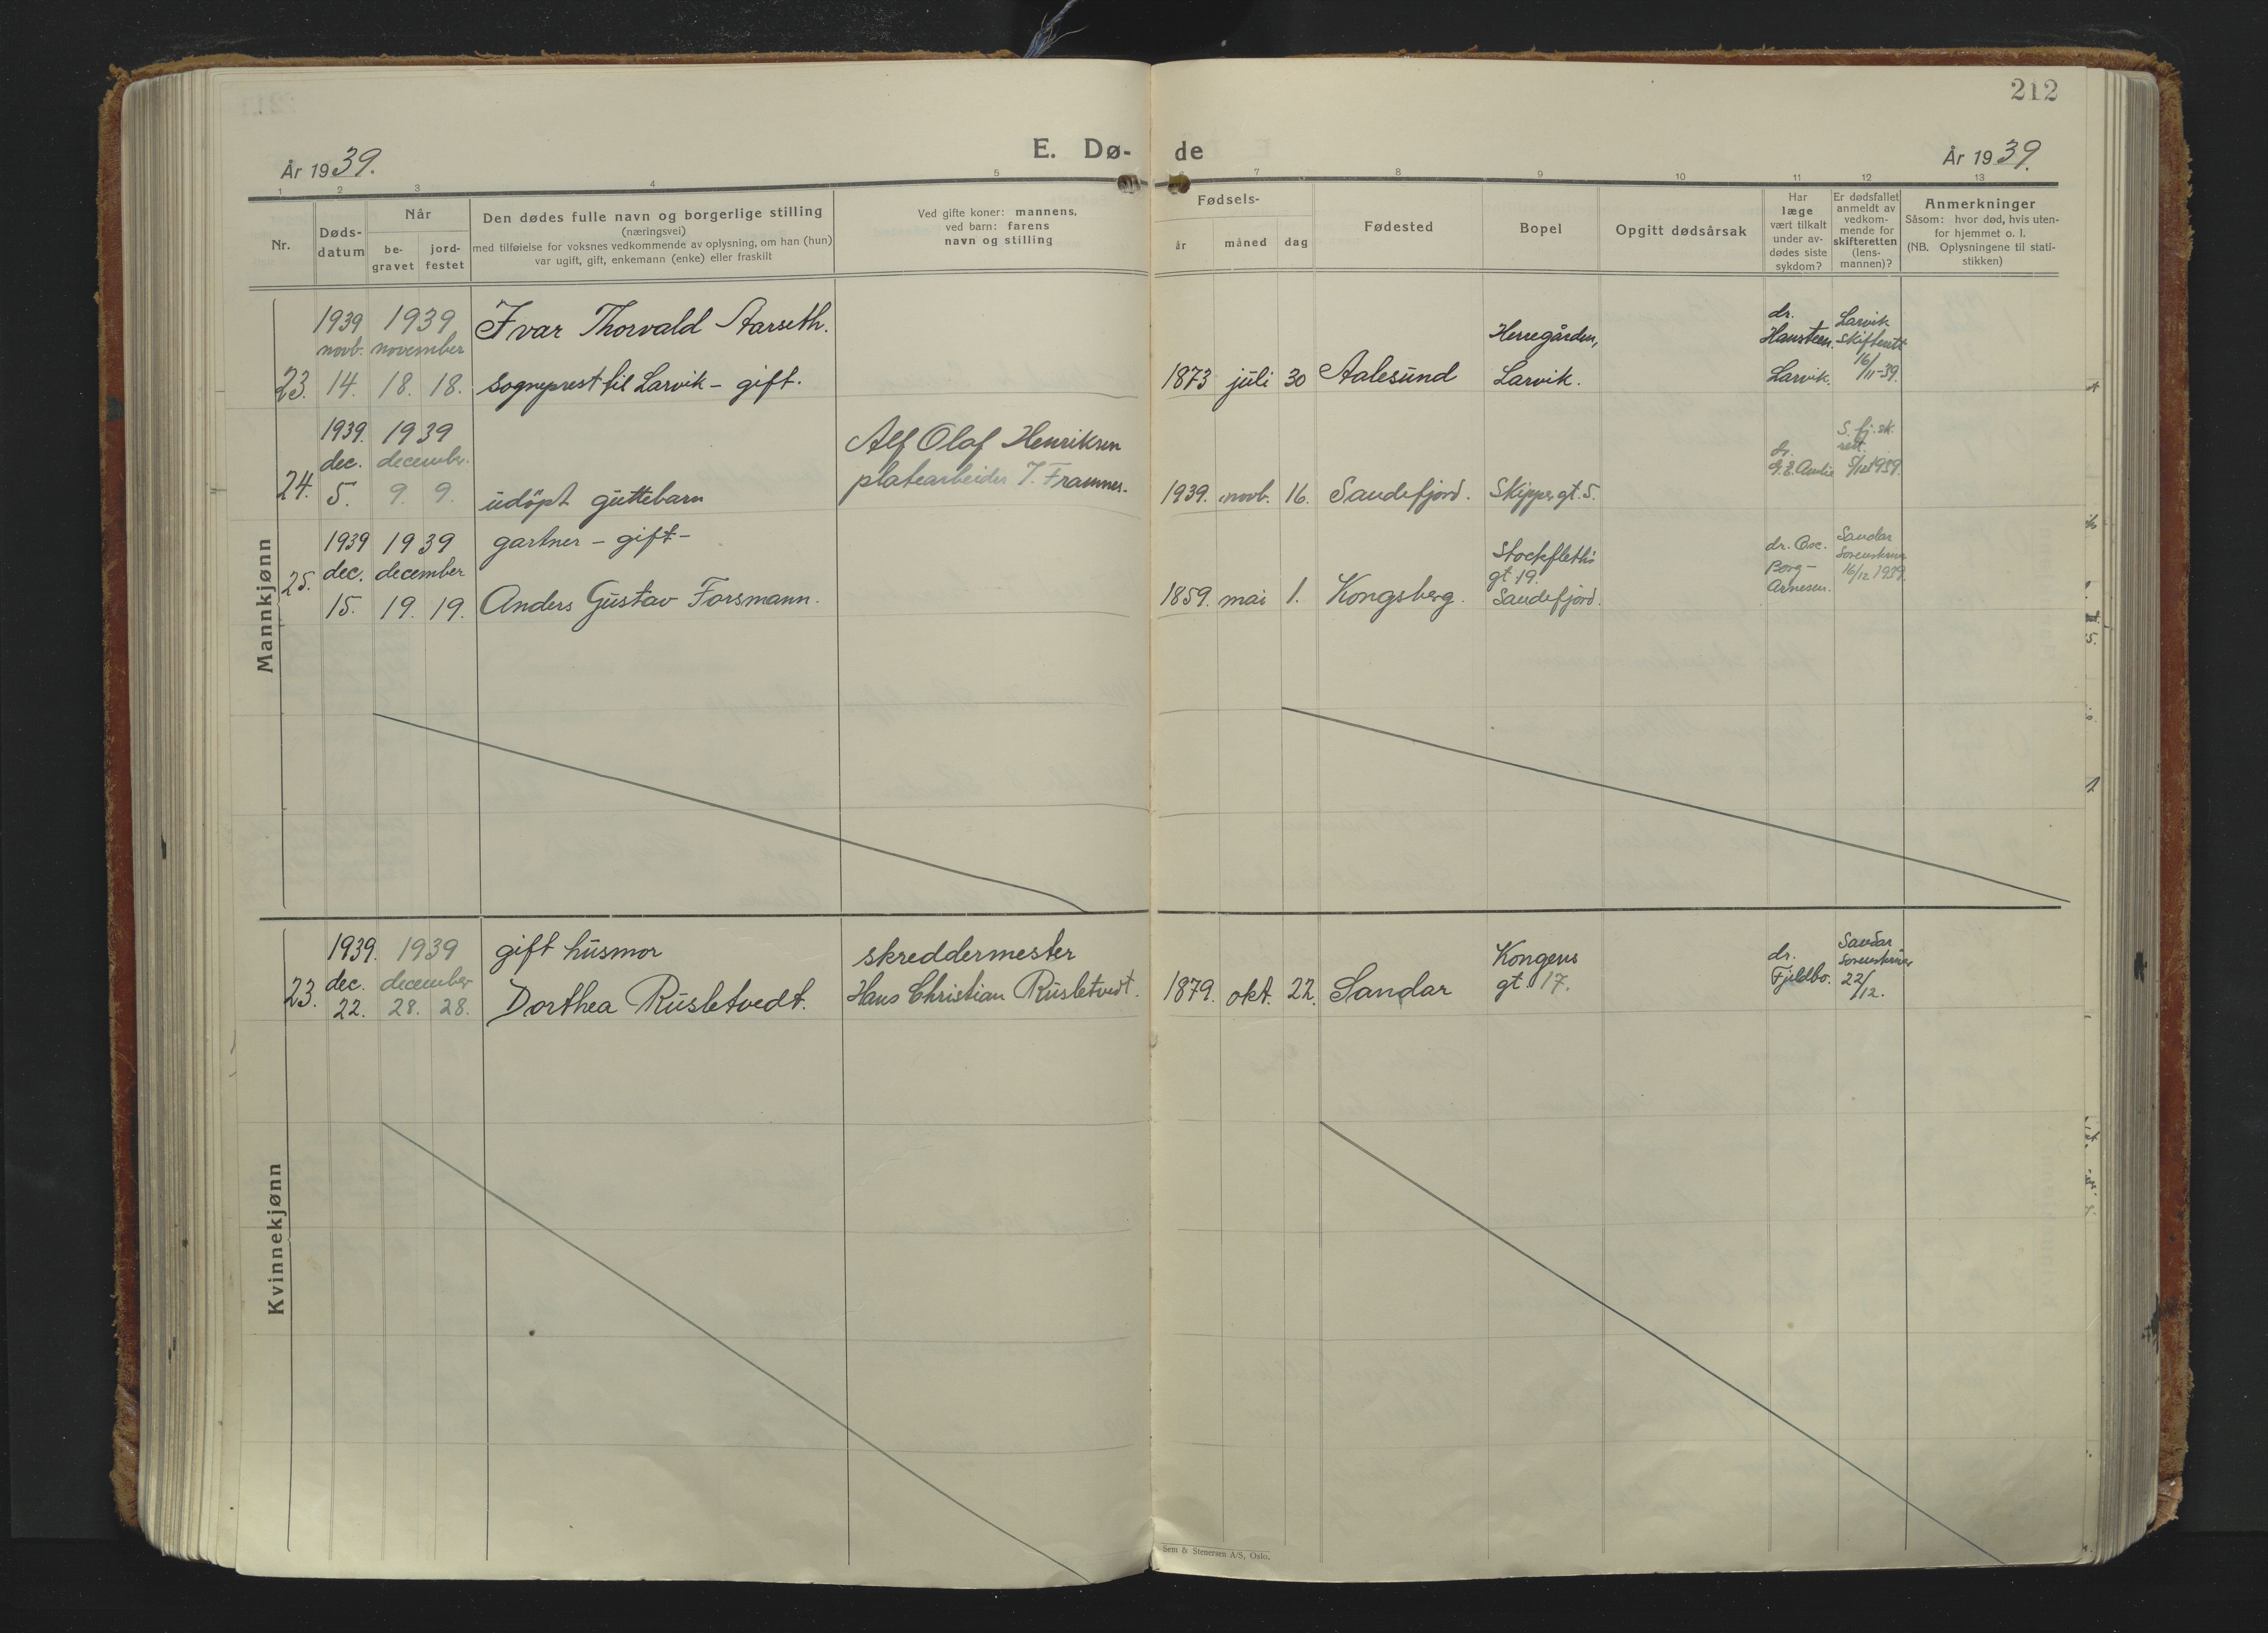 212
E. Dø- de
År 1939.
År 1939.
1 2 3 4 5 6 7 8 9 10 11 12 13
Nr.
Døds-
datum
Når
be-
gravet
jord-
festet
Den dødes fulle navn og borgerlige stilling
(næringsvei)
med tilføielse for voksnes vedkommende av oplysning, om han (hun)
var ugift, gift, enkemann (enke) eller fraskilt
Ved gifte koner: mannens,
ved barn: farens
navn og stilling
Fødsels-
år måned dag
Fødested
Bopel
Opgitt dødsårsak
Har
læge
vært tilkalt
under av-
dødes siste
sykdom?
Er dødsfallet
anmeldt av
vedkom-
mende for
skifteretten
(lens-
mannen)?
Anmerkninger
Såsom: hvor død, hvis uten-
for hjemmet o. l.
(NB. Oplysningene til stati-
stikken)
Mannkjønn
1939 1939 Ivar Thorvald Aarseth.
novb. november
23. 14. 18. 18. sogneprest til Larvik - gift.
1873 juli 30 Aalesund
Herregården,
Larvik.
dr.
Hansteen.
Larvik.
Larvik
Skifterett
16/11-39.
1939. 1939
dec. december.
24. 5. 9. 9. udöpt guttebarn
Alf Olaf Henriksen
platearbeider Framnes.
1939. novb. 16. Sandefjord. Skipper gt. 5.
dr.
S. fj. sk.
rett.
5/12 1939
1939 1939 gartner - gift -
dec. december
25. 15. 19. 19. Anders Gustav Forsmann.
1859. mai 1. Kongsberg.
Stockfleths
gt. 19.
Sandefjord.
dr. Osc.
Borg-
Arnesen.
Sandar
Sorenskriver
16/12 1939.
Kvinnekjønn
1939. 1939 gift husmor
23. dec. december
22. 28. 28. Dorthea Rusletvedt.
skreddermester
Hans Christian Rusletvedt.
1879. okt. 22. Sandar
Kongens
gt. 17.
dr.
Fjeldbo.
Sandar
Sorenskriver
22/12.
Sem & Stenersen A/S, Oslo.